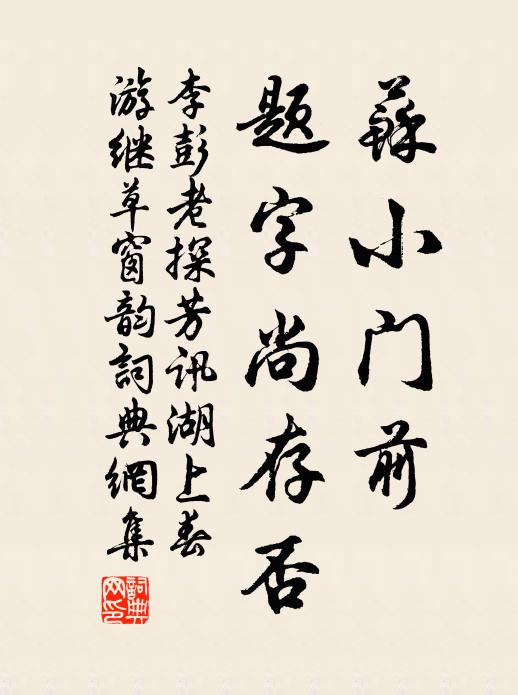 蘇小门前
题字尚存否
李彭老探芳讯湖上春
游继草窗韵詞典網集
詞典网印